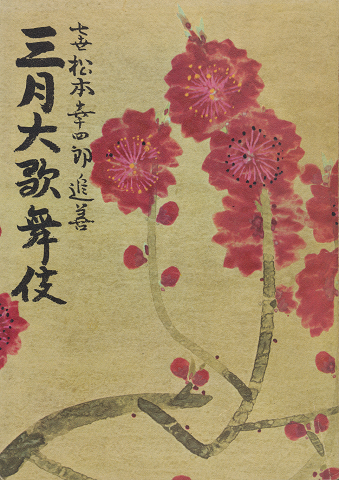 七世 松本幸四郎 追善
三月大歌舞伎